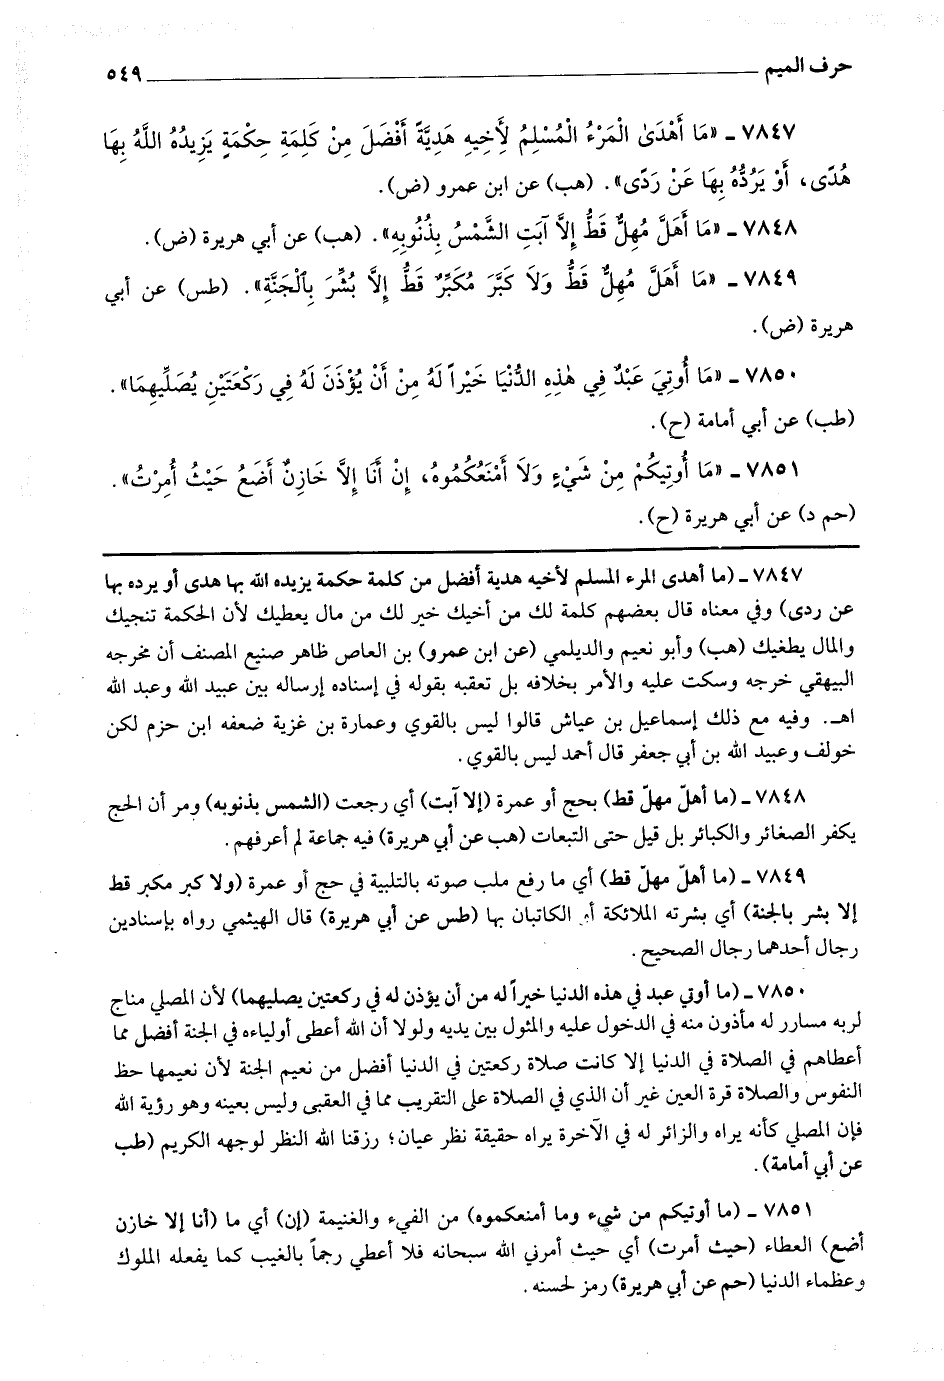 حرف الميم ٥٤٩
٧٨٤٧ ـ «مَا أَهْدَىٰ الْمَرْءُ الْمُسْلِمُ لِأَخِيهِ هَدِيَّةً أَفْضَلَ مِنْ كَلِمَةِ حِكْمَةٍ يَزِيدُهُ اللَّهُ بِهَا
هُدًى، أَوْ يَرُدُّهُ بِهَا عَنْ رَدًى». (هب) عن ابن عمرو (ض).
٧٨٤٨ ـ «مَا أَهَلَّ مُهِلٌّ قَطُّ إِلاَّ آبَتِ الشَّمْسُ بِذُنُوبِهِ». (هب) عن أبي هريرة (ض).
٧٨٤٩ ـ «مَا أَهَلَّ مُهِلٌّ قَطُّ وَلاَ كَبَّرَ مُكَبِّرٌ قَطُّ إِلاَّ بُشِّرَ بِٱلْجَنَّةِ». (طس) عن أبي
هريرة (ض).
٧٨٥٠ ـ «مَا أُوتِيَ عَبْدٌ فِي هٰذِهِ الدُّنْيَا خَيْراً لَهُ مِنْ أَنْ يُؤْذَنَ لَهُ فِي رَكْعَتَيْنِ يُصَلِّيهِمَا».
(طب) عن أبي أمامة (ح).
٧٨٥١ ـ «مَا أُوتِيكُمْ مِنْ شَيْءٍ وَلاَ أَمْنَعُكُمُوهُ، إِنْ أَنَا إِلاَّ خَازِنٌ أَضَعُ حَيْثُ أُمِرْتُ».
(حم د) عن أبي هريرة (ح).
٧٨٤٧ ـ (ما أهدى المرء المسلم لأخيه هدية أفضل من كلمة حكمة يزيده الله بها هدى أو يرده بها
عن ردى) وفي معناه قال بعضهم كلمة لك من أخيك خير لك من مال يعطيك لأن الحكمة تنجيك
والمال يطغيك (هب) وأبو نعيم والديلمي (عن ابن عمرو) بن العاص ظاهر صنيع المصنف أن مخرجه
البيهقي خرجه وسكت عليه والأمر بخلافه بل تعقبه بقوله في إسناده إرساله بين عبيد الله وعبد الله
اهـ. وفيه مع ذلك إسماعيل بن عياش قالوا ليس بالقوي وعمارة بن غزية ضعفه ابن حزم لكن
خولف وعبيد الله بن أبي جعفر قال أحمد ليس بالقوي.
٧٨٤٨ ـ (ما أهلّ مهلّ قط) بحج أو عمرة (إلا آبت) أي رجعت (الشمس بذنوبه) ومر أن الحج
يكفر الصغائر والكبائر بل قيل حتى التبعات (هب عن أبي هريرة) فيه جماعة لم أعرفهم.
٧٨٤٩ ـ (ما أهلّ مهلّ قط) أي ما رفع ملب صوته بالتلبية في حج أو عمرة (ولا كبر مكبر قط
إلا بشر بالجنة) أي بشرته الملائكة أو الكاتبان بها (طس عن أبي هريرة) قال الهيثمي رواه بإسنادين
رجال أحدهما رجال الصحيح.
٧٨٥٠ ـ (ما أوتي عبد في هذه الدنيا خيراً له من أن يؤذن له في ركعتين يصليهما) لأن المصلي مناج
لربه مسارر له مأذون منه في الدخول عليه والمثول بين يديه ولولا أن الله أعطى أولياءه في الجنة أفضل مما
أعطاهم في الصلاة في الدنيا إلا كانت صلاة ركعتين في الدنيا أفضل من نعيم الجنة لأن نعيمها حظ
النفوس والصلاة قرة العين غير أن الذي في الصلاة على التقريب مما في العقبى وليس بعينه وهو رؤية الله
فإن المصلي كأنه يراه والزائر له في الآخرة يراه حقيقة نظر عيان؛ رزقنا الله النظر لوجهه الكريم (طب
عن أبي أمامة).
٧٨٥١ ـ (ما أوتيكم من شيء وما أمنعكموه) من الفيء والغنيمة (إن) أي ما (أنا إلا خازن
أضع) العطاء (حيث أمرت) أي حيث أمرني الله سبحانه فلا أعطي رجماً بالغيب كما يفعله الملوك
وعظماء الدنيا (حم عن أبي هريرة) رمز لحسنه.